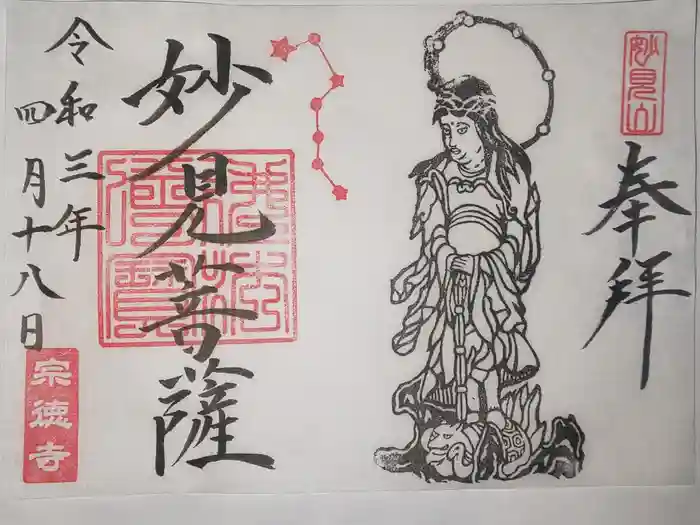 妙見山
奉拝
妙見菩薩
令和三年
四月十八日
宗徳寺